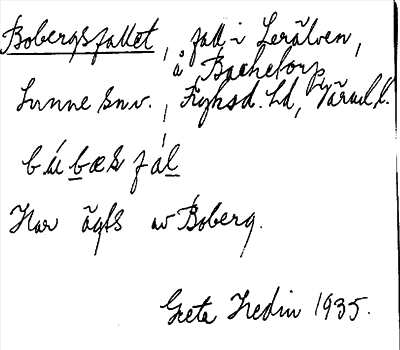 Bobergsfallet, fall i Lerälven,
å Backetorp,
Sunne snv., Fryksd. hd, Värml. l.
bu̲bæs fál
Har ägts av Boberg.
Greta Hedin 1935.